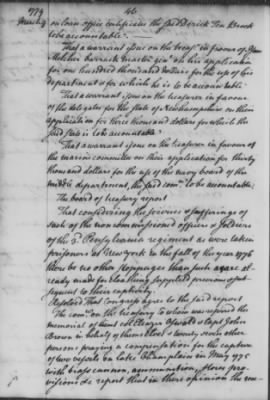 1779
46
March 9
on loan office certificates the said Derick Ten Broeck
to be accountable.
That a warrant issue on the treasr in favour of
Melcher barrack master genl on his application
for one hundred thousand dollars for the use of his
department & for which he is to be accountable.
That a warrant issue on the treasurer in favour
of the delegates for the state of Newhampshire on their
application for three thousand dollars for which the
said state is to be accountable.
That a warrant issue on the treasurer in favour of
the marine committee on their application for thirty
thousand dollars for the use of the navy board of the
middle department, the said comee to be accountable:
The board of treasury report
That considering the services & sufferings of
such of the non commissioned officers & soldiers
of the 5 Pensylvania regiment as were taken
prisoners at New york in the fall of the year 1776
there be no other stoppages than such as are al-
ready made for cloathing supplied previous or sub-
sequent to their captivity.
Resolved That Congress agree to the said report
The comee on the treasury to whom was referred the
memorial of Eleazer Oswald & Capt John
Brown in behalf of themselves & twenty seven other
persons praying a compensation for the capture
of two vessels on lake Champlain in May 1775
with brass cannon, ammunition, stores pro-
visions & report that in their opinion the